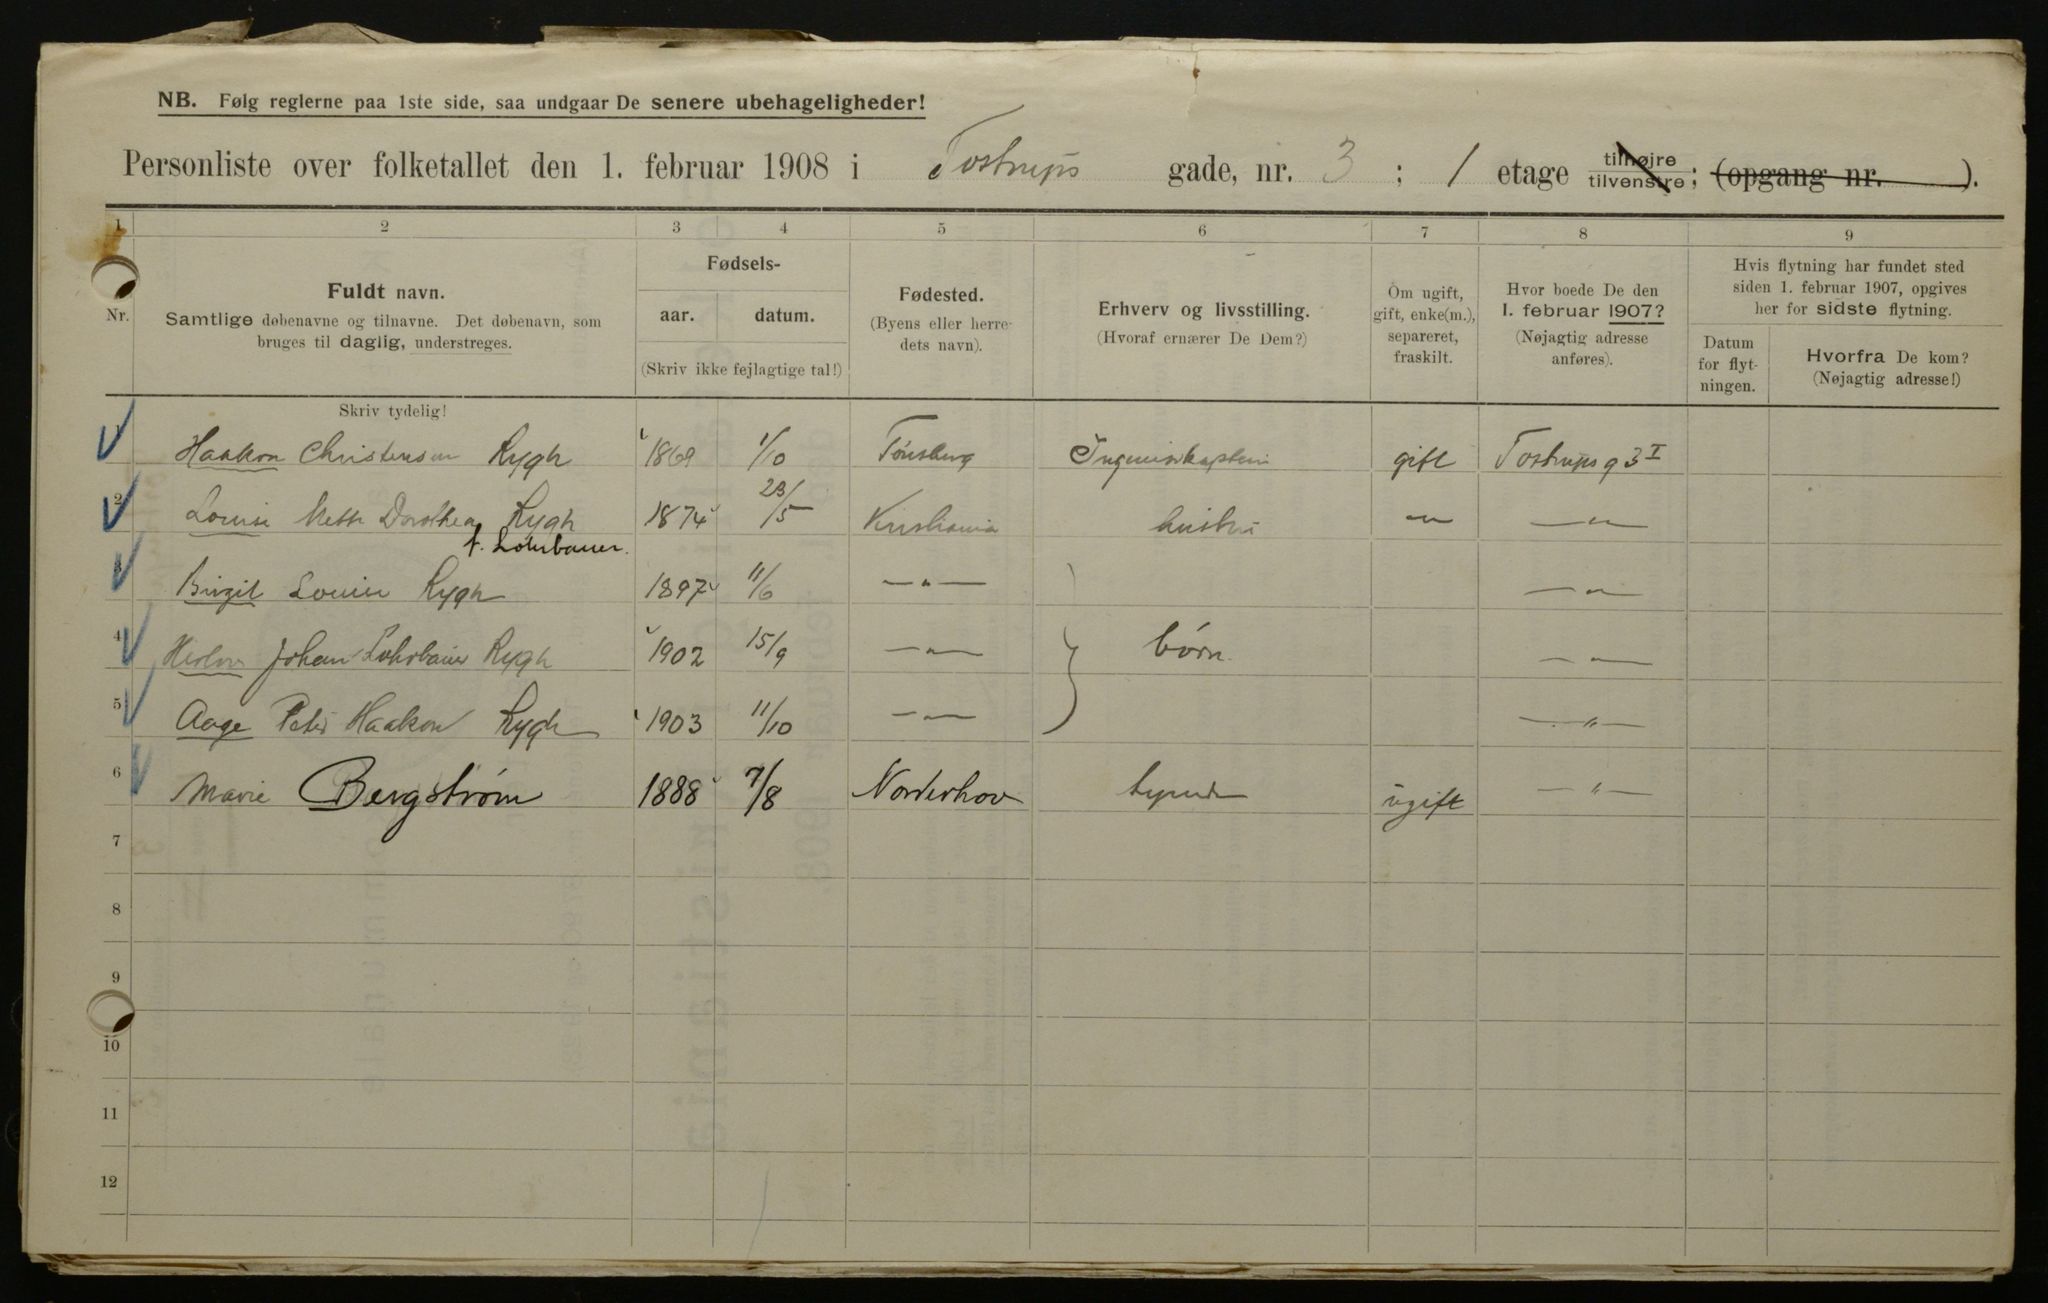 NB. Følg reglerne paa 1ste side, saa undgaar De senere ubehageligheder!
Personliste over folketallet den 1. februar 1908 i Tostrups gade, nr. 3 ; 1 etage tilhøjre tilvenstre ; (opgang nr. ).
1 2 3 4 5 6 7 8 9
Nr.
Fuldt navn.
Samtlige døbenavne og tilnavne. Det døbenavn, som
bruges til daglig, understreges.
Fødsels-
aar. datum.
(Skriv ikke fejlagtige tal!)
Fødested.
(Byens eller herre-
dets navn).
Erhverv og livsstilling.
(Hvoraf ernærer De Dem?)
Om ugift,
gift, enke(m.),
separeret,
fraskilt.
Hvor boede De den
1. februar 1907?
(Nøjagtig adresse
anføres).
Hvis flytning har fundet sted
siden 1. februar 1907, opgives
her for sidste flytning.
Datum
for flyt-
ningen.
Hvorfra De kom?
(Nøjagtig adresse!)
Skriv tydelig!
1 Haakon Christensen Rygh 1869 1/10 Tønsberg Ingeniørkaptein gift Tostrups g 3 I
2 Louise Mette Dorothea Rygh 1874 23/5 Kristiania hustru — " — — " —
f. Lohrbauer.
3 Birgit Louise Rygh 1897 11/6 — " — — " —
4 Johan Lohrbauer Rygh 1902 15/9 — " — børn. — " —
5 Aage Peter Haakon Rygh 1903 11/10 — " — — " —
6 Marie Bergstrøm 1888 7/8 Norderhov ugift — " —
7
8
9
10
11
12